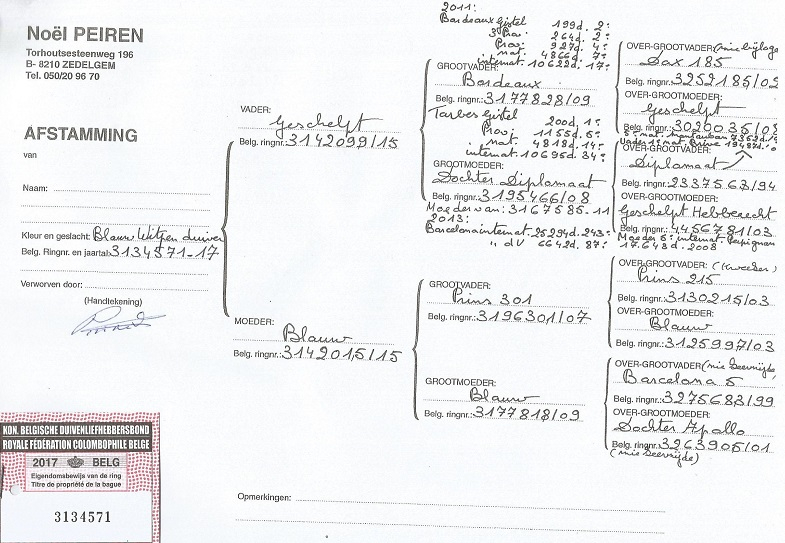 Noël PEIREN
Torhoutsesteenweg 196
B- 8210 ZEDELGEM
Tel. 050/20 96 70
AFSTAMMING
van
Naam:
Kleur en geslacht: Blauw Witpen duiver
Belg. Ringnr. en jaartal: 3134571-17
Verworven door:
(Handtekening)
VADER:
Geschelpt
Belg. ringnr.: 3142099/15
MOEDER:
Blauw
Belg. ringnr.: 3142015/15
2011:
Bordeaux Gistel 199d. 2:
3 Prov 264d. 2:
Prov 927d. 4:
nat. 4866d. 7:
internat. 10622d. 17:
GROOTVADER:
Bordeaux
Belg. ringnr.: 3177828/09
Tarbes Gistel 200d. 1:
Prov 1155d. 5:
nat. 4818d. 14:
internat. 10695d. 34:
GROOTMOEDER:
Dochter Diplomaat
Belg. ringnr.: 3195466/08
Moeder van: 3167585-11
2013:
Barcelona internat. 25294d. 243:
" dV 6642d. 87:
GROOTVADER:
Prins 301
Belg. ringnr.: 3196301/07
GROOTMOEDER:
Blauw
Belg. ringnr.: 3177818/09
OVER-GROOTVADER: (zie bijlage
Dax 185
Belg. ringnr.: 3252185/02
OVER-GROOTMOEDER:
Geschelpt
Belg. ringnr.: 3020035/08
5: nat. Montauban
Vader 1: nat. Brive 19487d.
OVER-GROOTVADER:
Diplomaat
Belg. ringnr.: 2337563/94
OVER-GROOTMOEDER:
Geschelpt Hebberecht
Belg. ringnr.: 4456781/03
Moeder 5: internat. Perpignan
17.643d. 2008
OVER-GROOTVADER: (Kweeder)
Prins 215
Belg. ringnr.: 3130215/03
OVER-GROOTMOEDER:
Blauw
Belg. ringnr.: 3125997/03
OVER-GROOTVADER:
Barcelona 5
Belg. ringnr.: 3275683/99
OVER-GROOTMOEDER:
Dochter Apollo
Belg. ringnr.: 3263905/01
Opmerkingen:
KON. BELGISCHE DUIVENLIEFHEBBERSBOND
ROYALE FÉDÉRATION COLOMBOPHILE BELGE
2017 BELG
Eigendomsbewijs van de ring
Titre de propriété de la bague
3134571